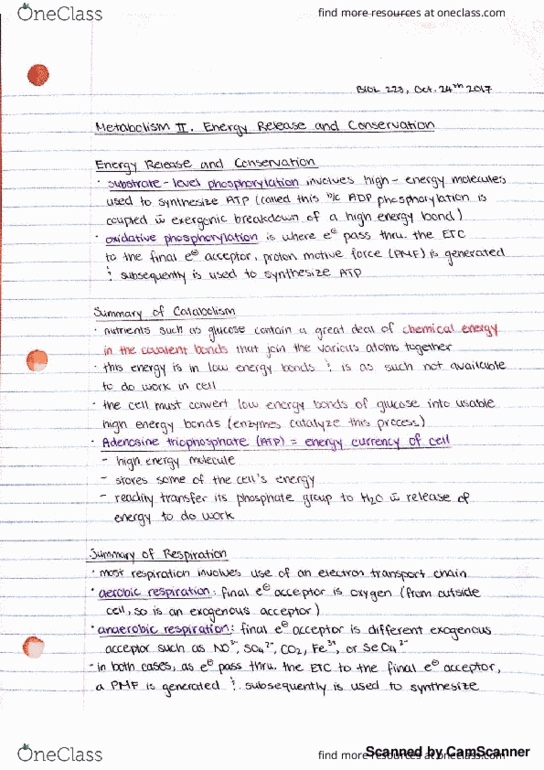 OneClass
find more resources at oneclass.com
BIOL 223, Oct. 24th 2017
Metabolism II. Energy Release and Conservation
Energy Release and Conservation
· substrate-level phosphorylation involves high-energy molecules
used to synthesize ATP (called this b/c ADP phosphorylation is
coupled w̄ exergonic breakdown of a high energy bond)
· oxidative phosphorylation is where e⊖ pass thru. the ETC
to the final e⊖ acceptor, proton motive force (PMF) is generated
⁝ subsequently is used to synthesize ATP
Summary of Catabolism
· nutrients such as glucose contain a great deal of chemical energy
in the covalent bonds that join the various atoms together
· this energy is in low energy bonds ⁝ is as such not available
to do work in cell
· the cell must convert low energy bonds of glucose into usable
high energy bonds (enzymes catalyze this process)
· Adenosine triophosphate (ATP) = energy currency of cell
- high energy molecule
- stores some of the cell's energy
- readily transfer its phosphate group to H₂O w̄ release of
energy to do work
Summary of Respiration
· most respiration involves use of an electron transport chain
· aerobic respiration: final e⊖ acceptor is oxygen (from outside
cell, so is an exogenous acceptor)
· anaerobic respiration: final e⊖ acceptor is different exogenous
acceptor such as NO³⁻, SO₄²⁻, CO₂, Fe³⁺, or SeO₄²⁻
- in both cases, as e⊖ pass thru. the ETC to the final e⊖ acceptor,
a PMF is generated ⁝ subsequently is used to synthesize
OneClass
find more resources at oneclass.com
Scanned by CamScanner